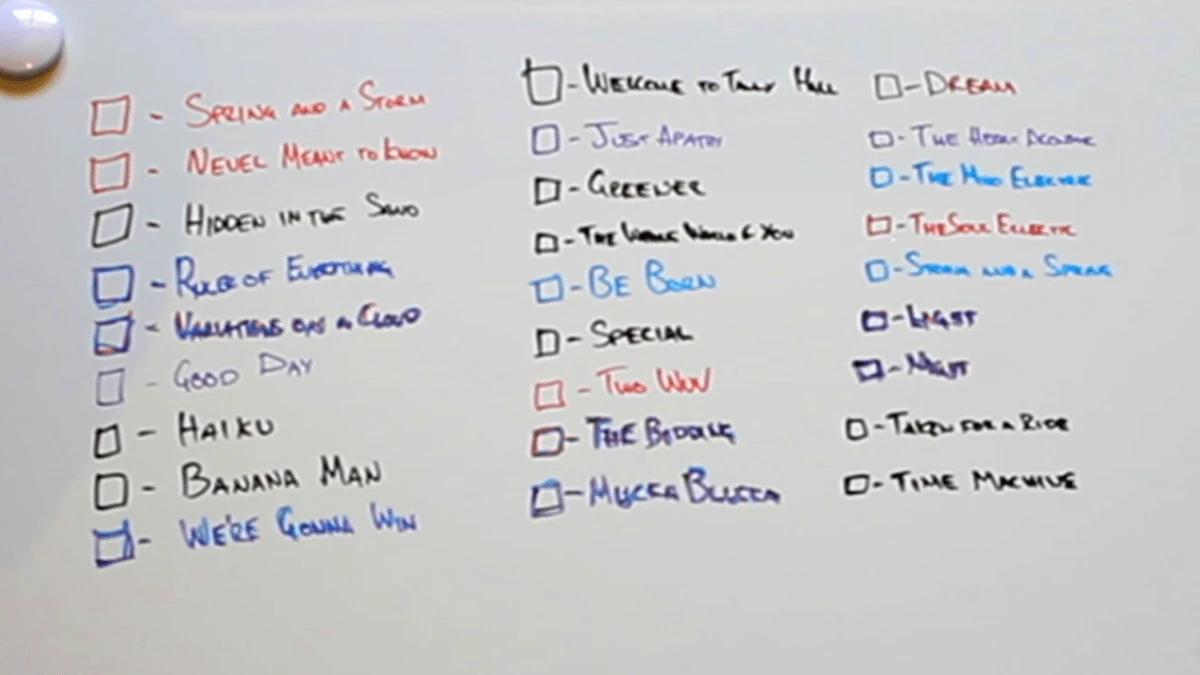 - Spring and a Storm
- Never Meant to Know
- Hidden in the Sand
- Ruler of Everything
- Variations on a Cloud
- Good Day
- Haiku
- Banana Man
- We're Gonna Win
- Welcome to Tally Hall
- Just Apathy
- Greener
- The Whole World & You
- Be Born
- Special
- Two Wuv
- The Bidding
- Mucka Blucka
- Dream
- The
- The Mind Electric
- The Soul Eclectic
- Storm and a Spring
- Light
- Night
- Taken for a Ride
- Time Machine